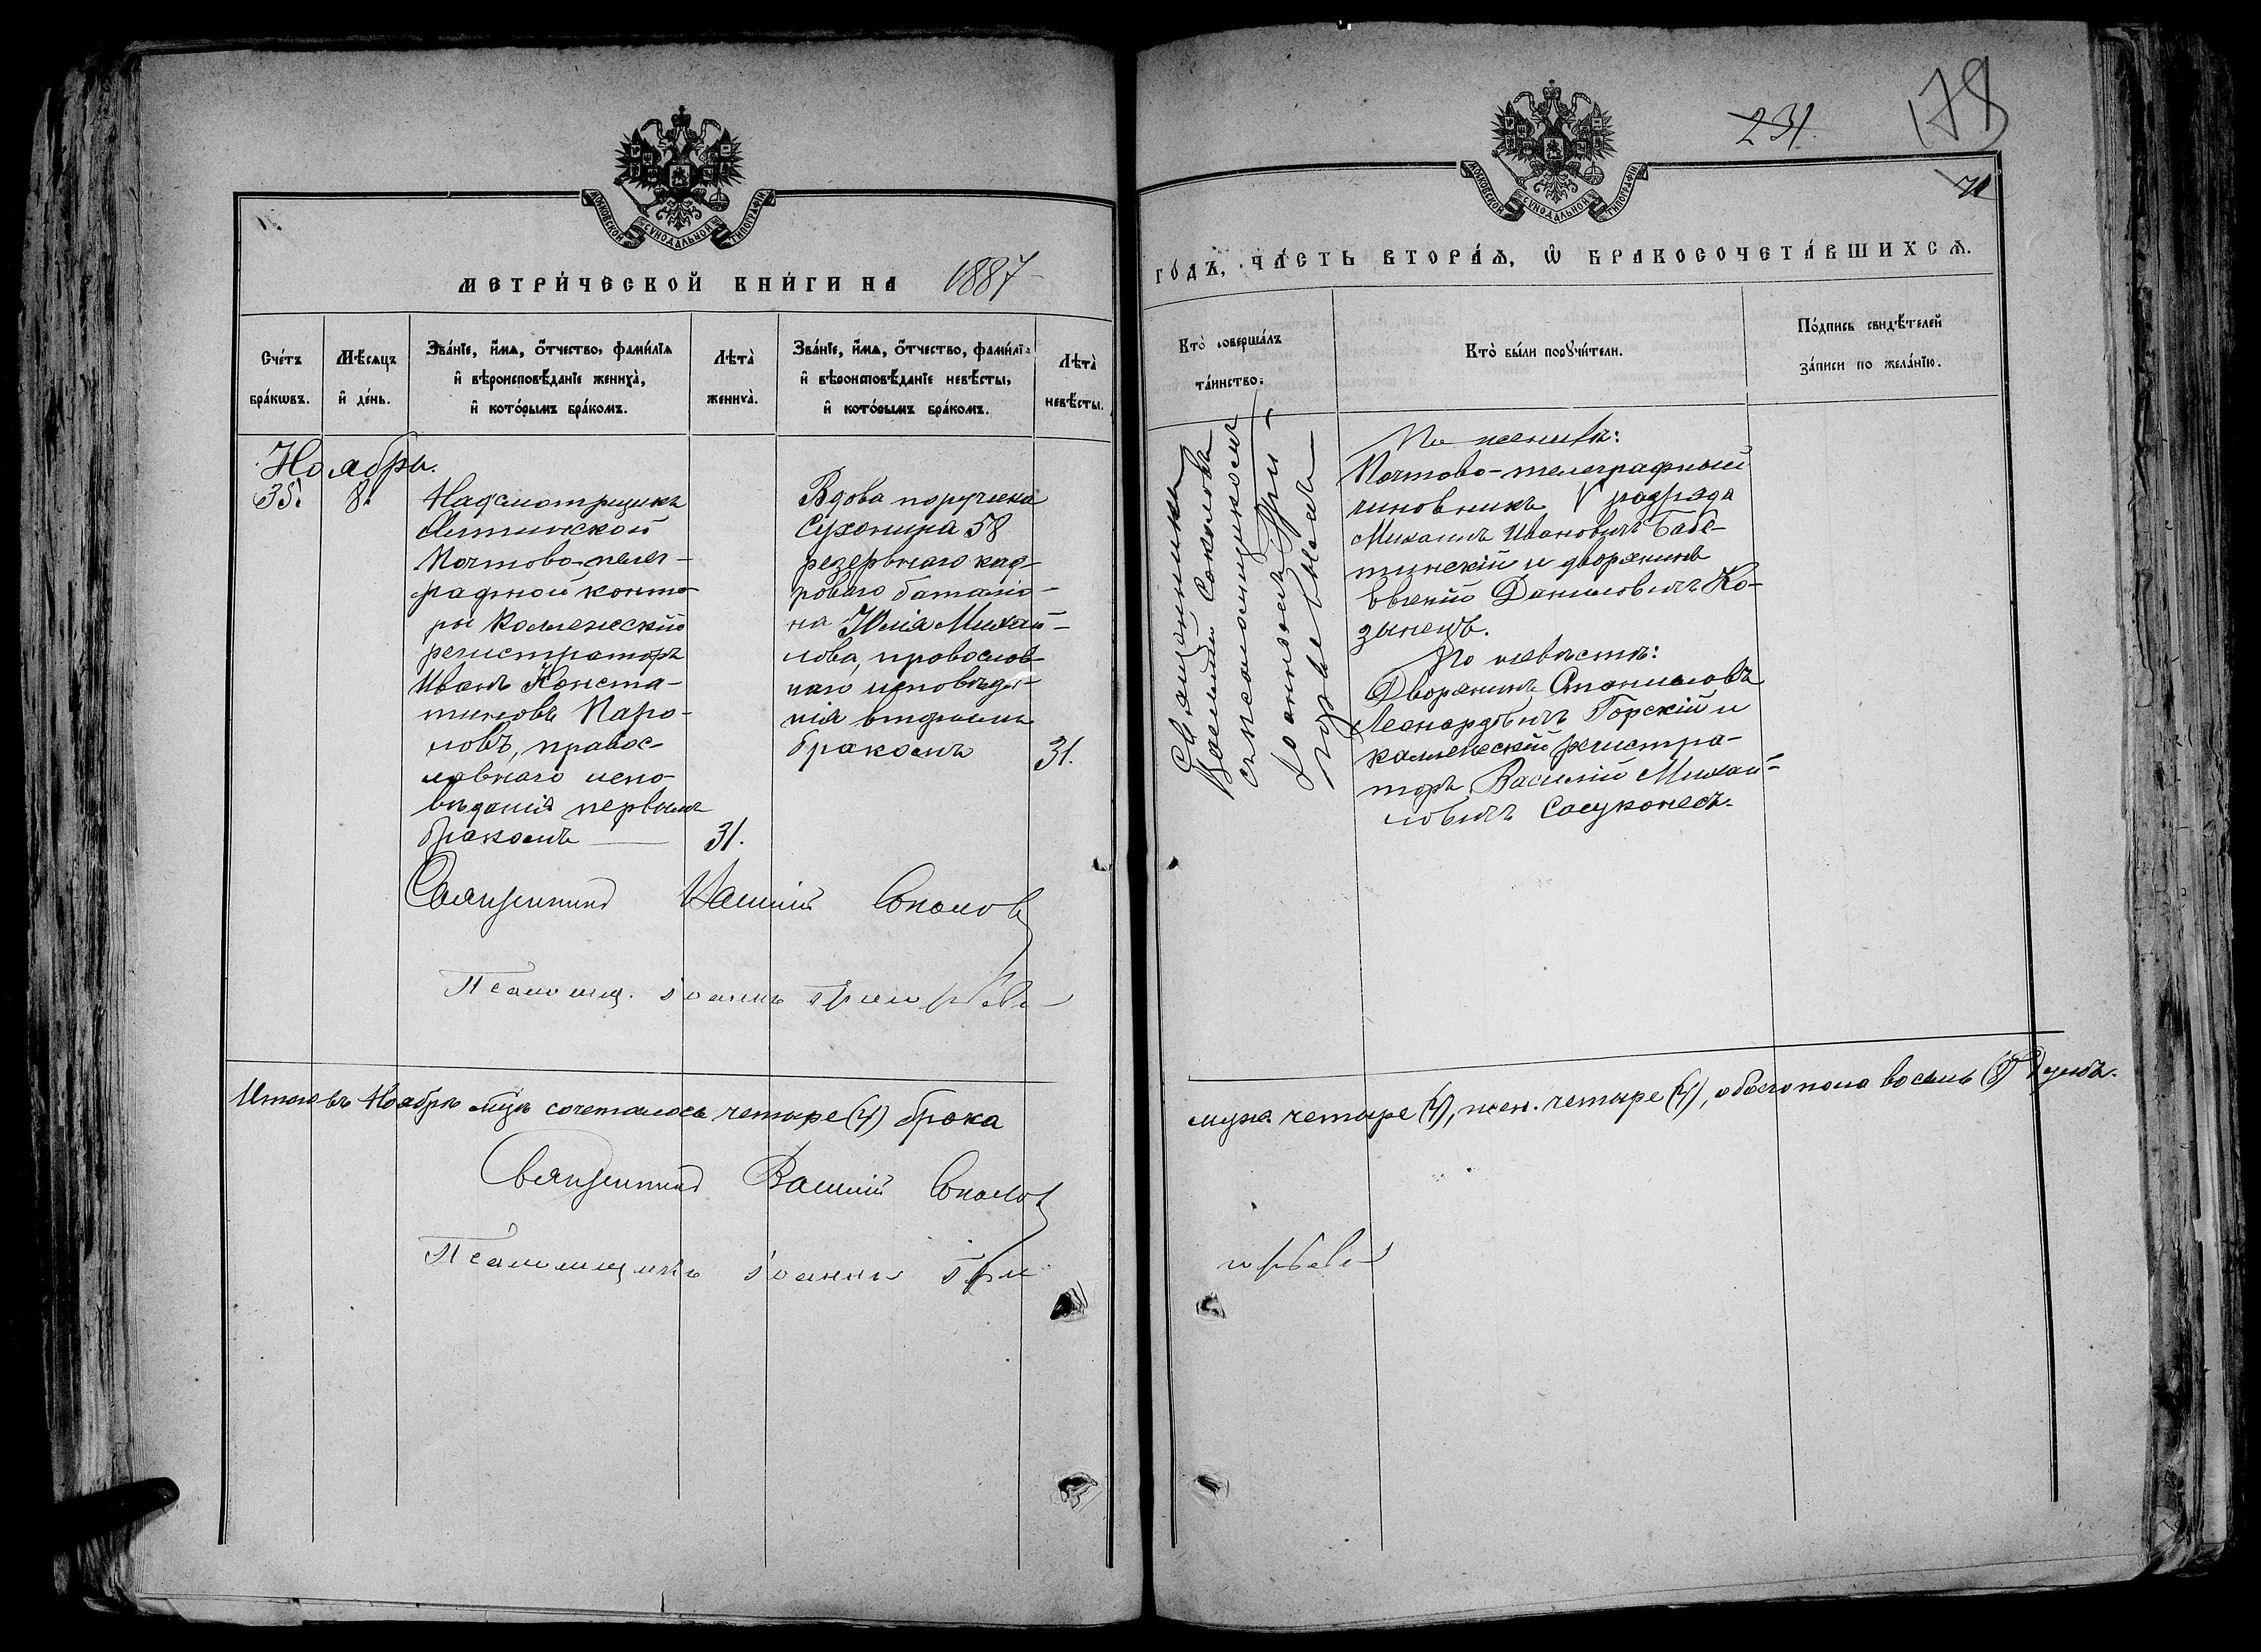 МОСКОВСКОЙ СѴНОДАЛЬНОЙ ТИПОГРАФІИ
МЕТРИ́ЧЕСКОЙ КНИ́ГИ НА 1887
Сче́тъ бра́кѡвъ.
Мѣсяцъ и҆ де́нь.
Зва́нїе, и҆́мѧ, ѻ҆́тчество, фамилїѧ и҆ вѣроисповѣданїе жениха̀, и҆ кото́рымъ бра́комъ.
Лѣта̀ жениха̀.
Зва́нїе, и҆́мѧ, ѻ҆́тчество, фамилїѧ и҆ вѣроисповѣданїе невѣсты, и҆ кото́рымъ бра́комъ.
Лѣта̀ невѣсты.
Ноябрь.
35. 8.
Надсмотрщикъ
Почтово-телег-
рафной конто-
ры Коллежскій
регистраторъ
Иванъ Конста-
тиновъ Паро-
новъ, правос-
лавнаго испо-
вѣданія первымъ
бракомъ
31.
Вдова поручика
Сухонина 58
резервнаго кад-
роваго баталіо-
на Юлія Михай-
лова, провослов-
наго исповѣда-
нія вторымъ
бракомъ
31.
Священникъ Василій Соколовъ
Псаломщ. Іоаннъ Григорьевъ
Итого въ Ноябрѣ м‑цѣ сочеталось четыре (4) брака
Священникъ Василій Соколовъ
Псаломщикъ Іоаннъ Гри
231.
178
71
МОСКОВСКОЙ СѴНОДАЛЬНОЙ ТИПОГРАФІИ
ГО́ДЪ, ЧА́СТЬ ВТОРА́Ѧ, Ѡ҆ БРАКОСОЧЕТА́ВШИХСѦ.
Кто̀ соверша́лъ та́инство.
Кто̀ бы́ли порꙋчи́тели.
По́дпись свидѣтелей за́писи по жела́нїю.
Священникъ
Василій Соколовъ
съ псаломщикомъ
Іоанномъ Гри-
горьевымъ
По женихѣ:
Почтово-телеграфный
чиновникъ V разряда
Михаилъ Ивановичъ Бабе-
тинскій и дворянинъ
Евгеній Даниловичъ Ко-
зинецъ.
По невѣстѣ:
Дворянинъ Станиловъ
Леонардовичъ Горскій и
коллежскій регистра-
торъ Василій Михай-
ловичъ
муж. четыре (4), жен. четыре (4), обоего пола восемь (8) душъ.
горьевъ